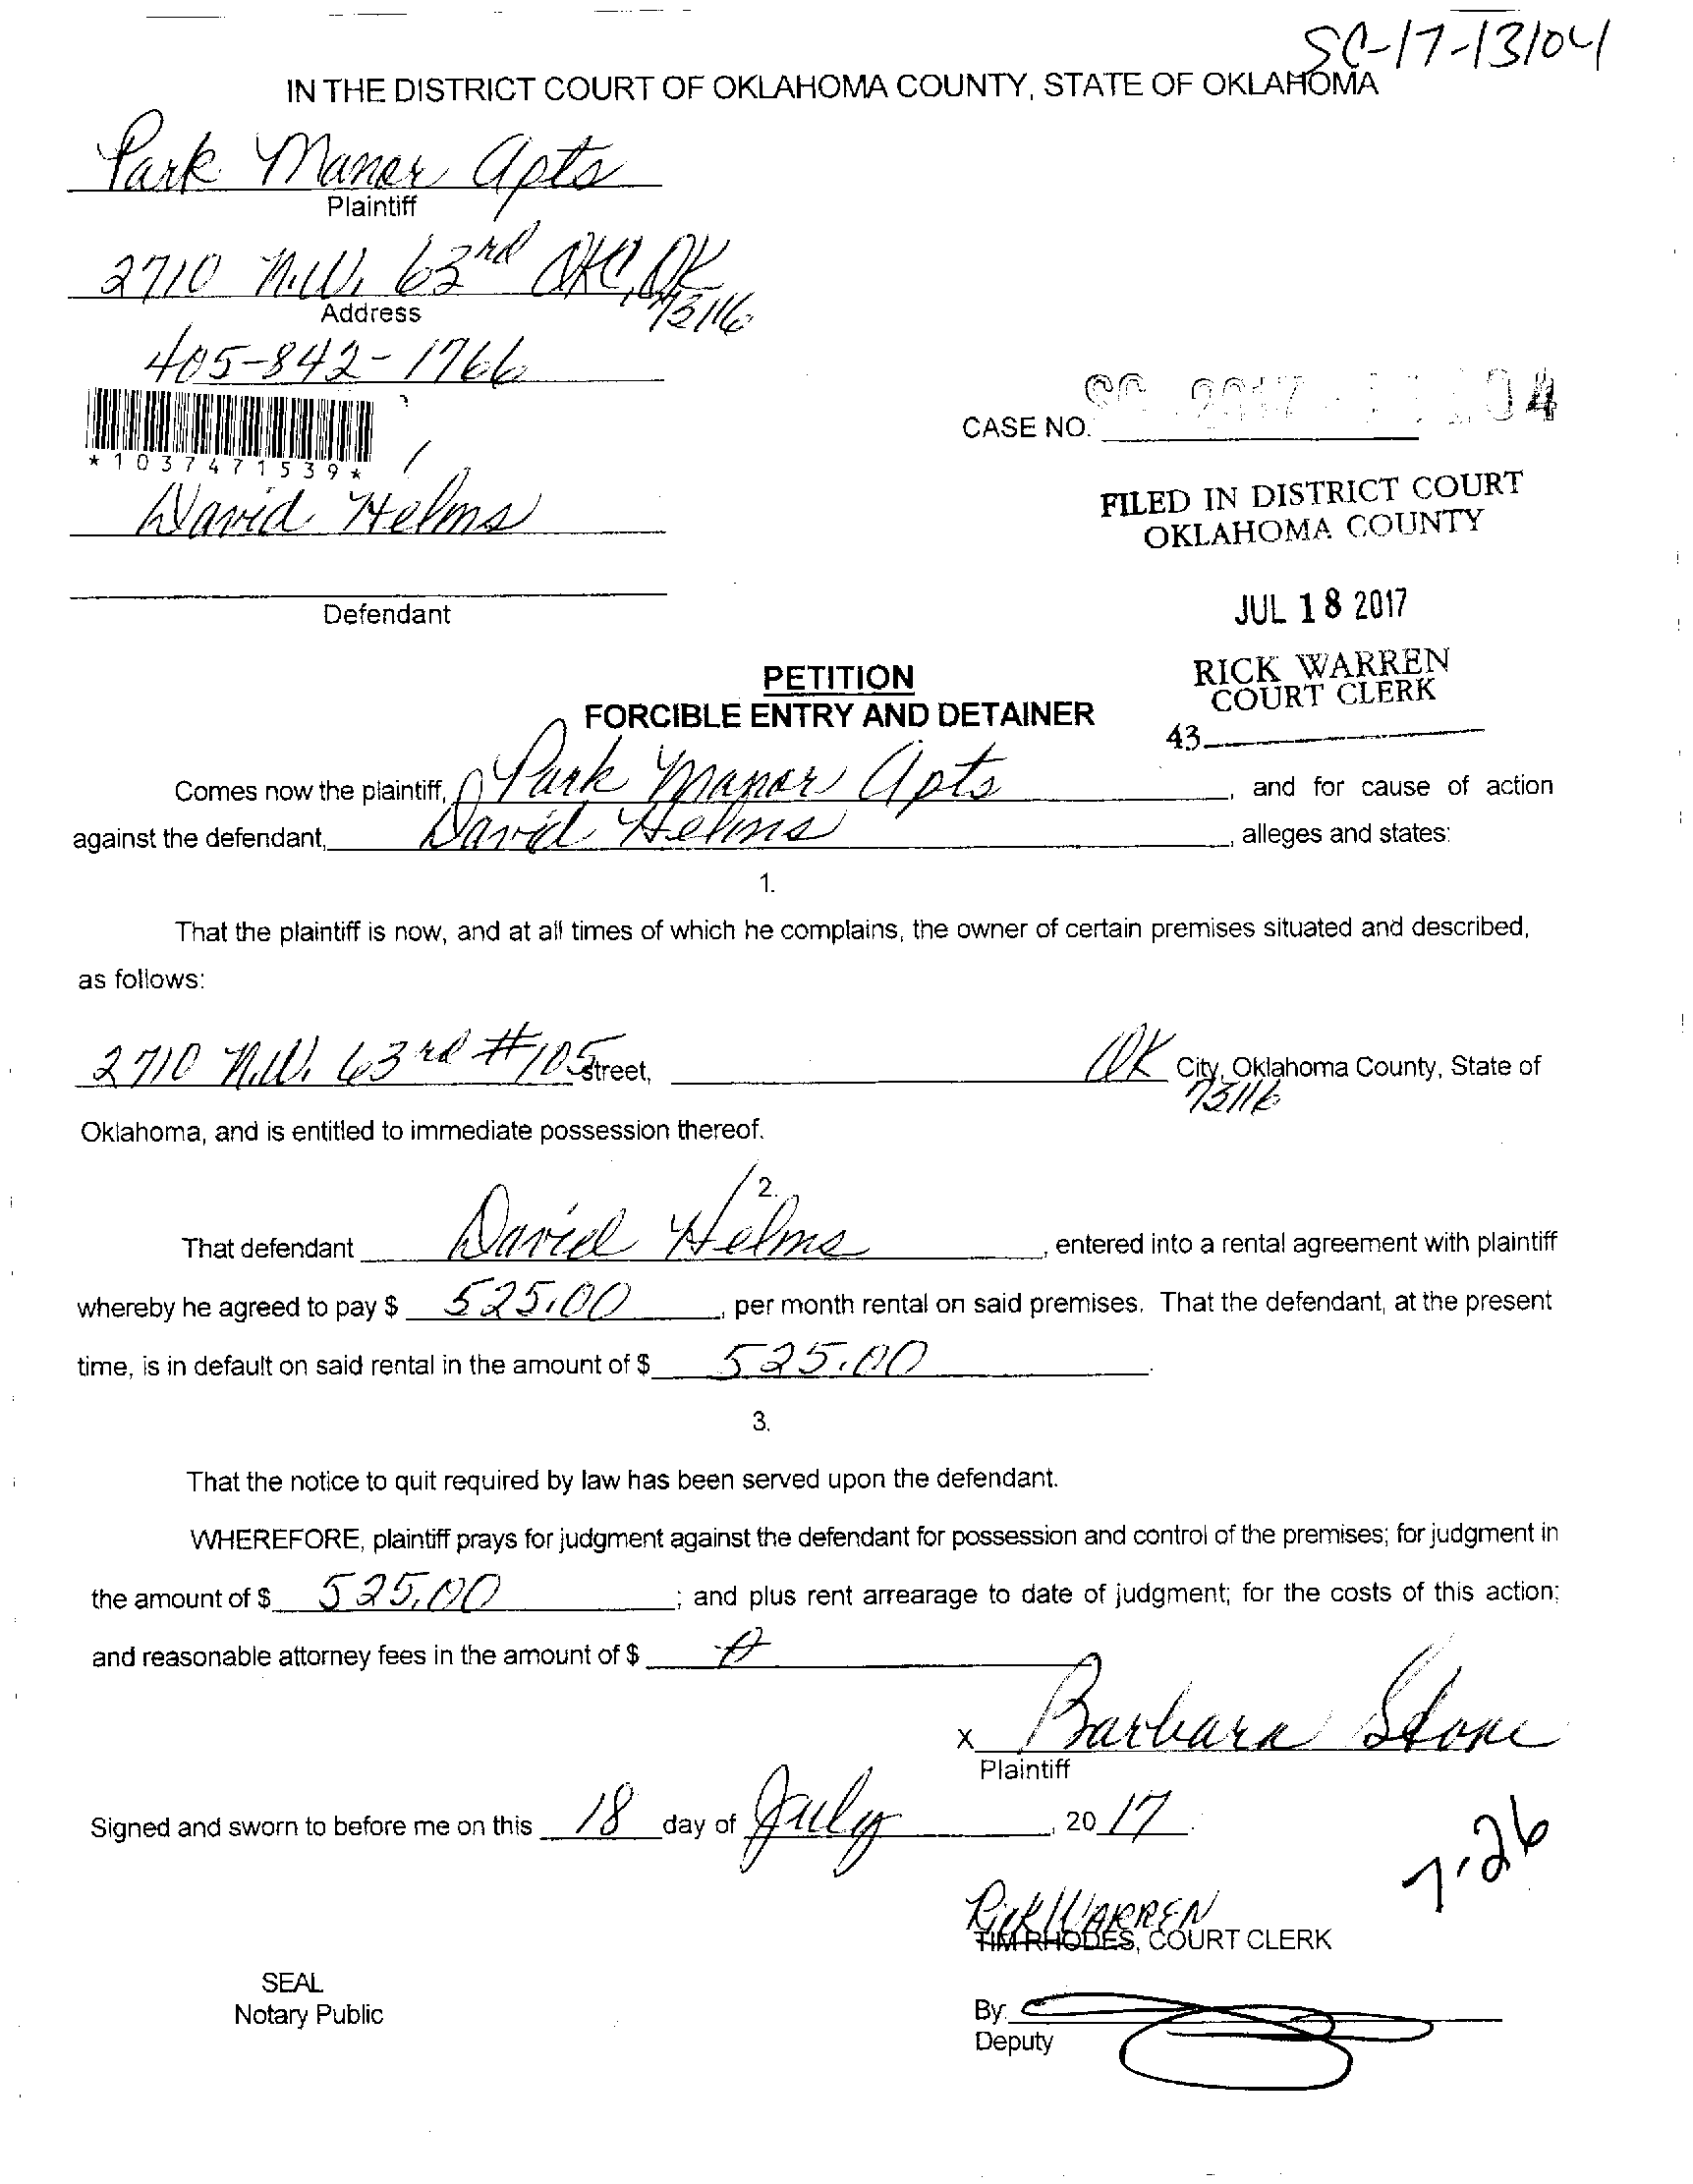 SC-17-13104
IN THE DISTRICT COURT OF OKLAHOMA COUNTY, STATE OF OKLAHOMA
Park Manor Apts
Plaintiff
2710 N.W. 63rd OKC, OK
73116
Address
405-842-1766
*1037471539*
CASE NO. SC 2017 04
David Helms
FILED IN DISTRICT COURT
OKLAHOMA COUNTY
Defendant
JUL 18 2017
RICK WARREN
COURT CLERK
43
PETITION
FORCIBLE ENTRY AND DETAINER
Comes now the plaintiff, Park Manor Apts, and for cause of action
against the defendant, David Helms, alleges and states:
1.
That the plaintiff is now, and at all times of which he complains, the owner of certain premises situated and described,
as follows:
2710 N.W. 63rd #105 Street, OK City, Oklahoma County, State of
73116
Oklahoma, and is entitled to immediate possession thereof.
2.
That defendant David Helms, entered into a rental agreement with plaintiff
whereby he agreed to pay $ 525.00, per month rental on said premises. That the defendant, at the present
time, is in default on said rental in the amount of $ 525.00.
3.
That the notice to quit required by law has been served upon the defendant.
WHEREFORE, plaintiff prays for judgment against the defendant for possession and control of the premises; for judgment in
the amount of $ 525.00; and plus rent arrearage to date of judgment; for the costs of this action;
and reasonable attorney fees in the amount of $
x Barbara Stone
Plaintiff
Signed and sworn to before me on this 18 day of July, 20 17.
7.26
Rick WARREN
TIM RHODES, COURT CLERK
SEAL
Notary Public
By:
Deputy